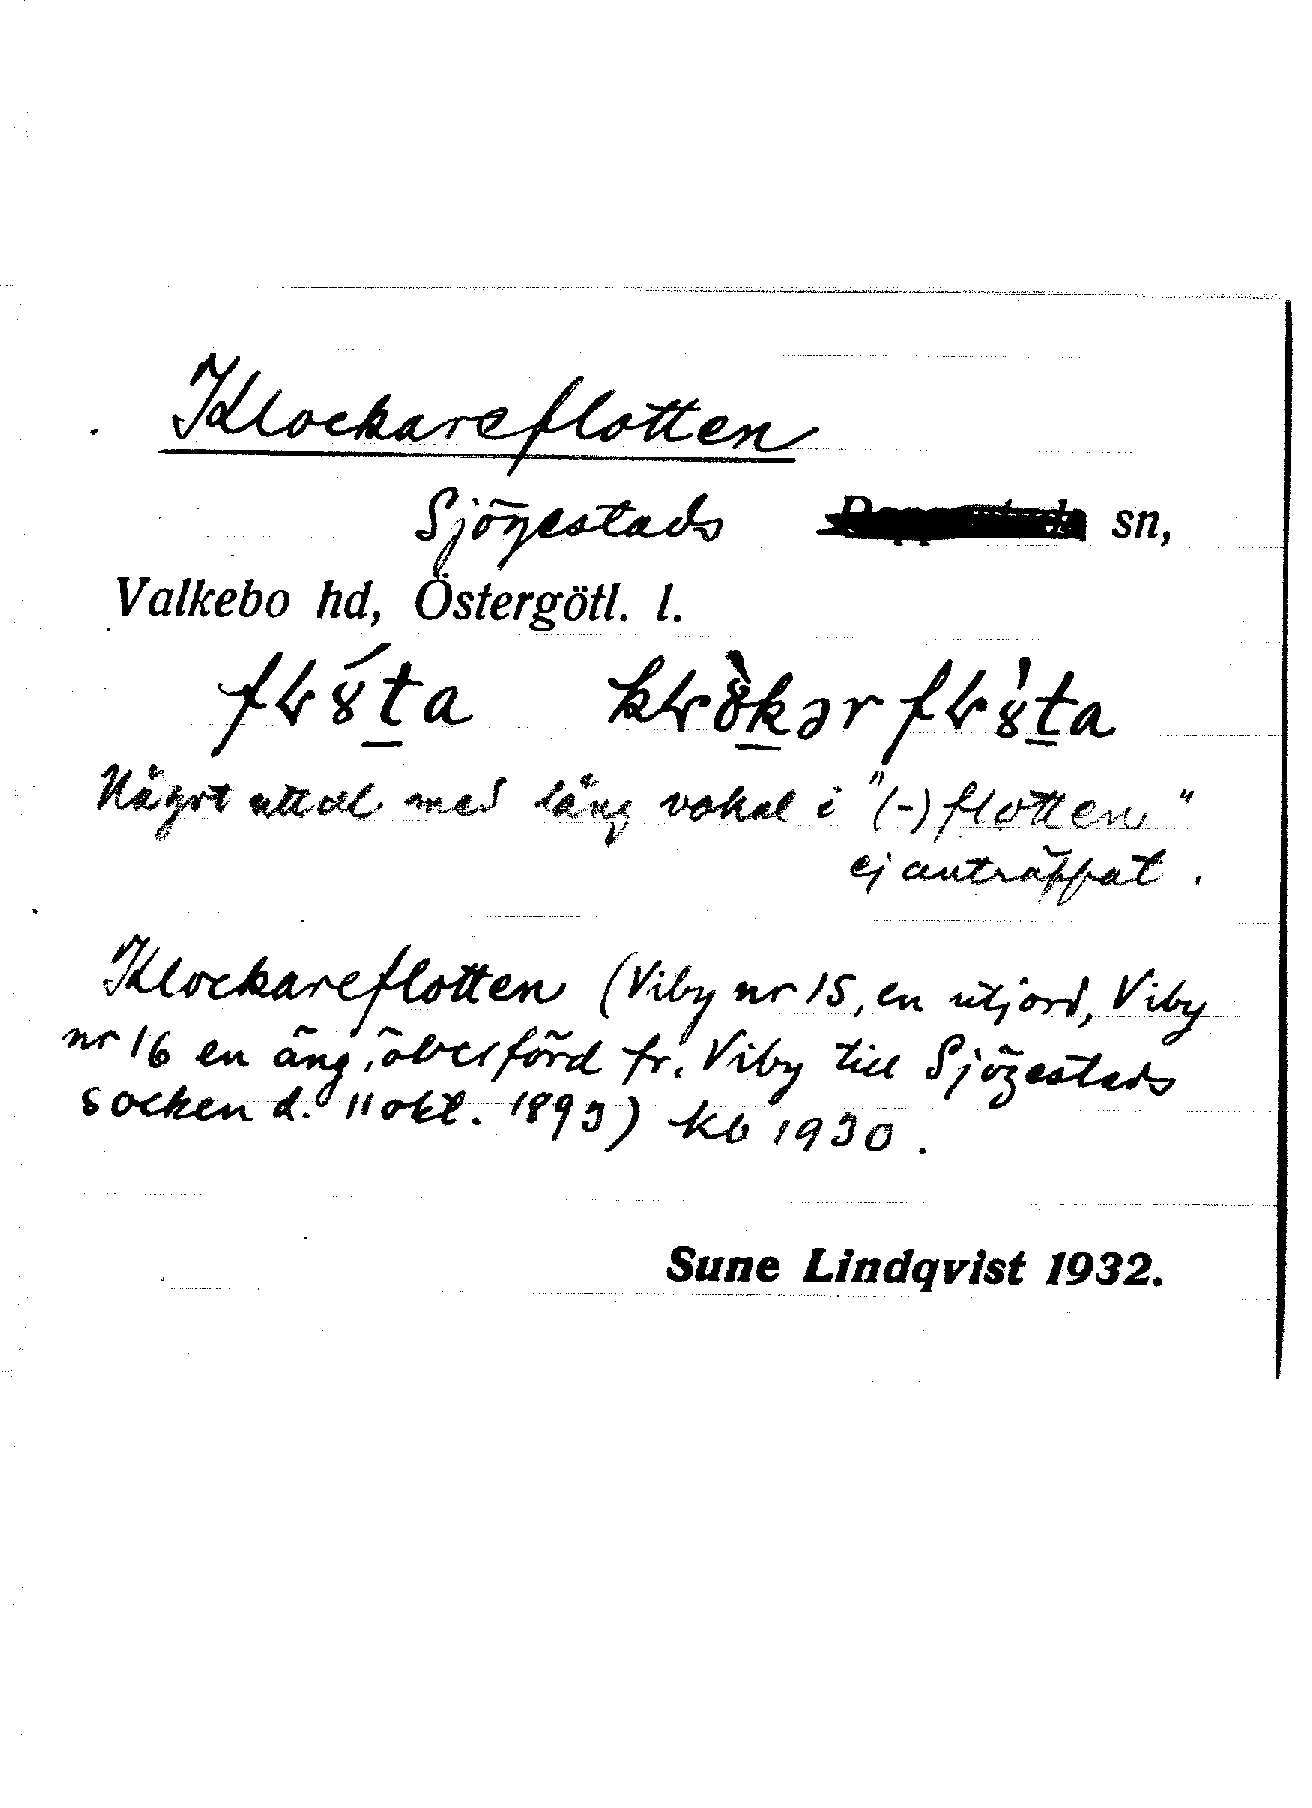 Klockareflotten
Sjögestads sn,
Valkebo hd, Östergötl. l.
Något uttal med lång vokal i "(-)flotten"
ej anträffat.
Klockareflotten (Viby nr 15, en utjord, Viby
nr 16 en äng, överförd fr. Viby till Sjögestads
socken d. 11 okt. 1893) kb 1930.
Sune Lindqvist 1932.